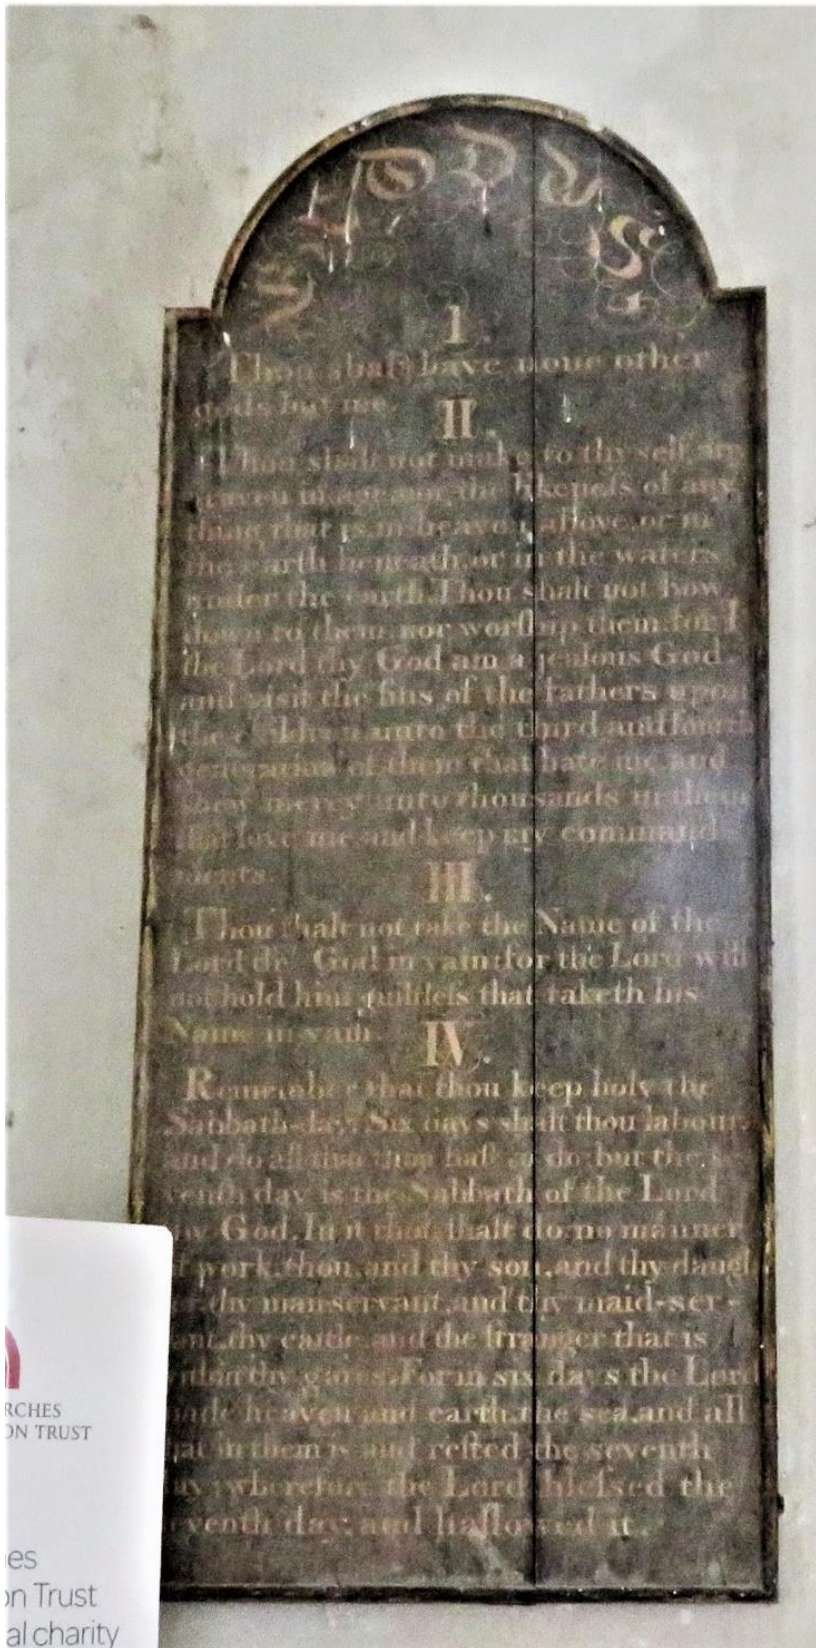 EXODUS
I.
Thou shalt have none other
gods but me
II.
Thou shalt not make to thy self any
graven image nor the likeneſs of any
thing that is in heaven above, or in
the earth beneath, or in the waters
under the earth. Thou shalt not bow
down to them nor worſhip them: for I
the Lord thy God am a jealous God
and visit the ſins of the fathers upon
the children unto the third and fourth
generation of them that hate me and
shew mercy unto thousands in them
that love me and keep my command
ments
III.
Thou ſhalt not take the Name of the
Lord thy God in vain: for the Lord will
not hold him guiltleſs that taketh his
Name in vain.
IV.
Remember that thou keep holy the
Sabbath-day. Six days shalt thou labour,
and do all that thou haſt to do: but the se
venth day is the Sabbath of the Lord
thy God. In it thou ſhalt do no manner
of work, thou, and thy son, and thy daugh
ter, thy man-servant, and thy maid-ser-
vant, thy cattle, and the ſtranger that is
within thy gates. For in six days the Lord
made heaven and earth, the sea, and all
that in them is and reſted the seventh
day; wherefore the Lord bleſsed the
seventh day, and hallowed it.
RCHES
ON TRUST
es
on Trust
al charity